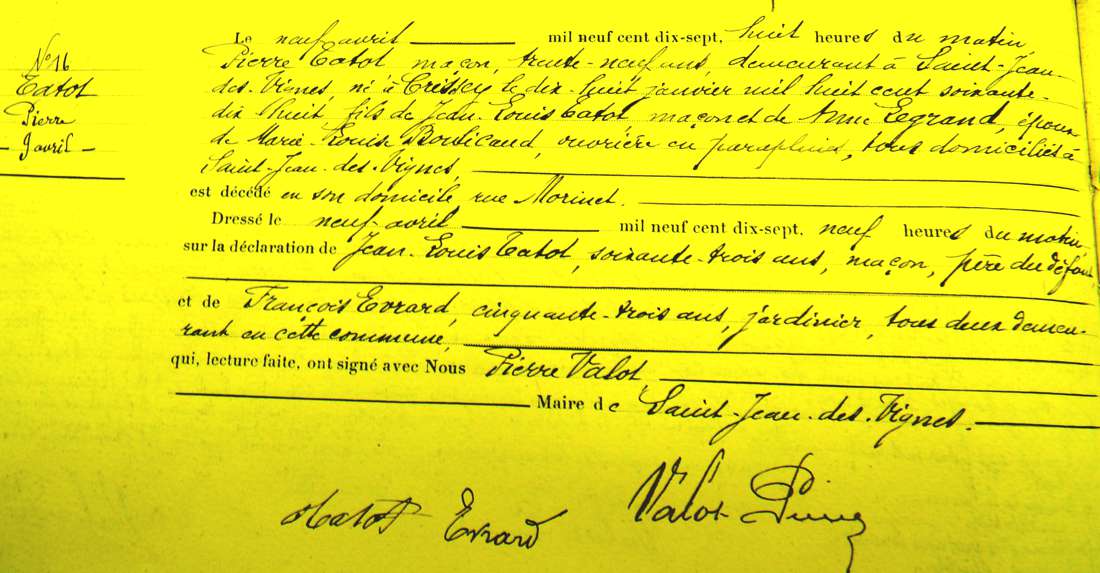 N° 16
Tatot
Pierre
9 avril
Le neuf avril mil neuf cent dix-sept, huit heures du matin,
Pierre Tatot, maçon, trente-neuf ans, demeurant à Saint-Jean-
des-Vignes, né à Crissey le dix-huit janvier mil huit cent soixante-
dix huit, fils de Jean-Louis Tatot, maçon et de Anne Legrand, époux
de Marie-Louise Boubicaud, ouvrière en parapluies, tous domiciliés à
Saint-Jean-des-Vignes,
est décédé en son domicile, rue Morinet.
Dressé le neuf avril mil neuf cent dix-sept, neuf heures du matin,
sur la déclaration de Jean-Louis Tatot, soixante-trois ans, maçon, père du défunt
et de François Evrard, cinquante-trois ans, jardinier, tous deux demeu-
rant en cette commune,
qui, lecture faite, ont signé avec Nous Pierre Valot,
Maire de Saint-Jean-des-Vignes.
Tatot Evrard Valot Pierre